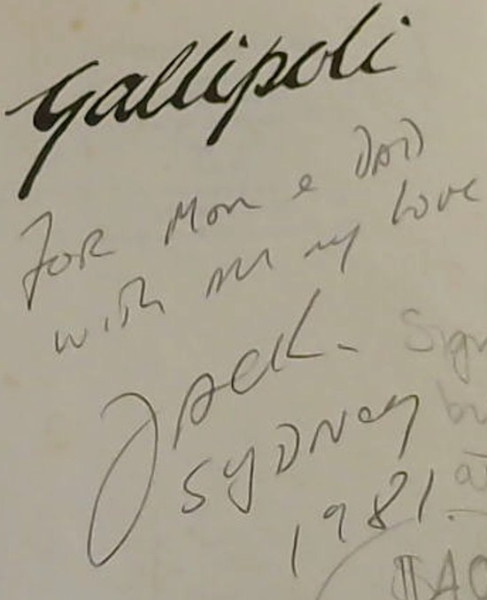 Gallipoli
FOR Mom & DAD
with All my love
JACK.
SYDNEY
1981.
Sign
by